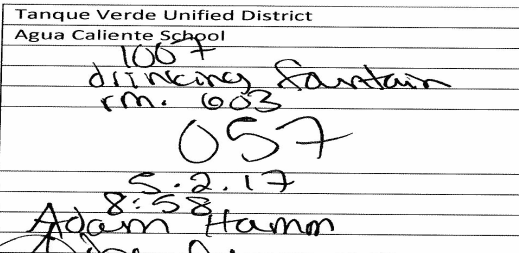 Tanque Verde Unified District
Agua Caliente School
1007
drincing fantain
rm. 603
057
5.2.17
8:58
Adam Hamm